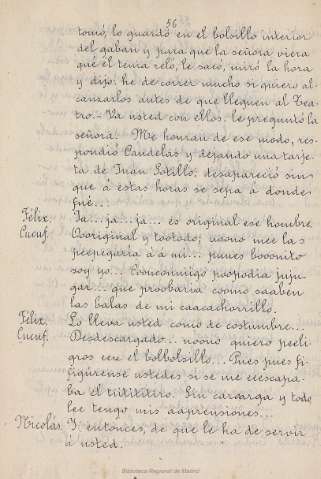 56
tomó, lo guardó en el bolsillo interior
del gaban y para que la señora viera
que él tenia reló, le sacó, miró la hora
y dijo: he de correr mucho si quiero al-
canzarlos antes de que lleguen al Tea-
tro.- Va usted con ellos. le preguntó la
señora. Me honran de ese modo, res-
pondió Candelas y dejando una tarje-
ta de Juan Sotillo, desapareció sin
que á estas horas se sepa á donde
fué...
Félix. Ja... já... ja... es original ese hombre
Cucuf. Ooriginal y tootodo;
peepegaria á á mi... puues booonito
soy yo... Coonconmigo poopodia juju-
gar... que proobaria coomo saaben
las balas de mi caacachorrillo.
Félix. Lo lleva usted como de costumbre...
Cucuf. Desdescargado... noono quiero peeli-
gros en el bolbolsillo... Pues pues fi-
figúrense ustedes si se me eescapa-
ba el tiitititiro. Sin cargarga y todo
lee tengo mis adprensiones...
Nicolás. Y, entonces, de que le ha de servir
á usted.
Biblioteca Regional de Madrid